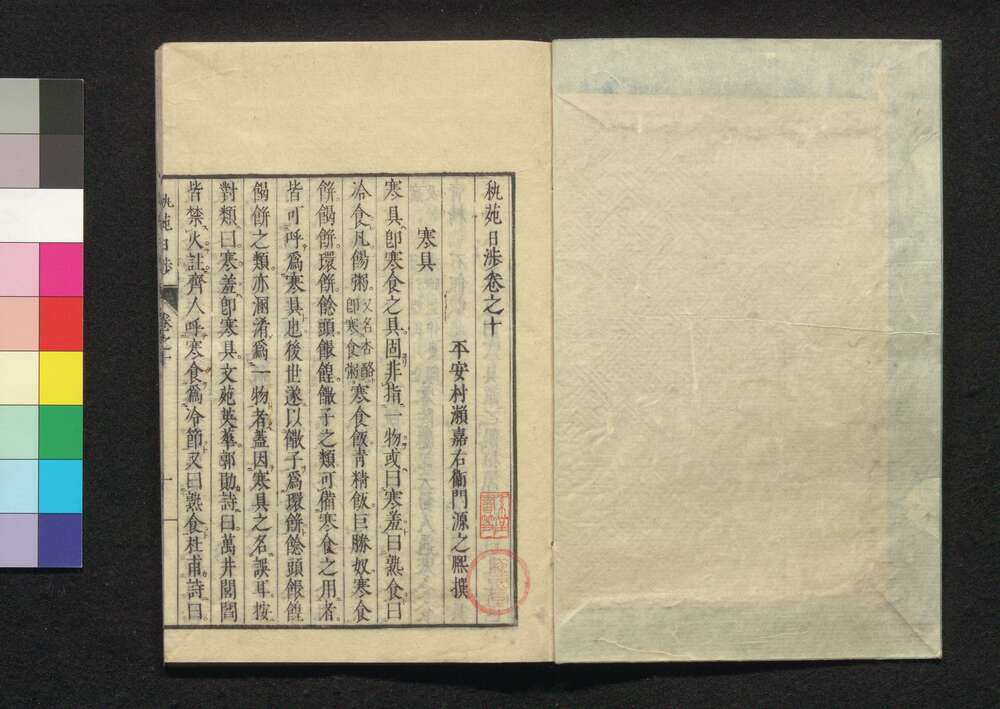 秇苑日渉卷之十
平安村瀨嘉右衞門源之熈撰
寒具
寒具卽寒食之具固非指一物或曰寒羞曰熟食曰
冷食凡餳粥又名杏酪卽寒食粥寒食飯靑精飯巨勝奴寒食
餠餲餠環餠餤頭餦餭䊩子之類可備寒食之用者
皆可呼爲寒具也後世遂以䊩子爲環餠餤頭餦餭
餲餠之類亦涵淆爲一物者蓋因寒具之名誤耳按
對類曰寒羞卽寒具文苑英華郭勛詩曰萬井閭閻
皆禁火註齊人呼寒食爲冷節又曰熟食杜甫詩曰
秇苑日渉
卷之十
一